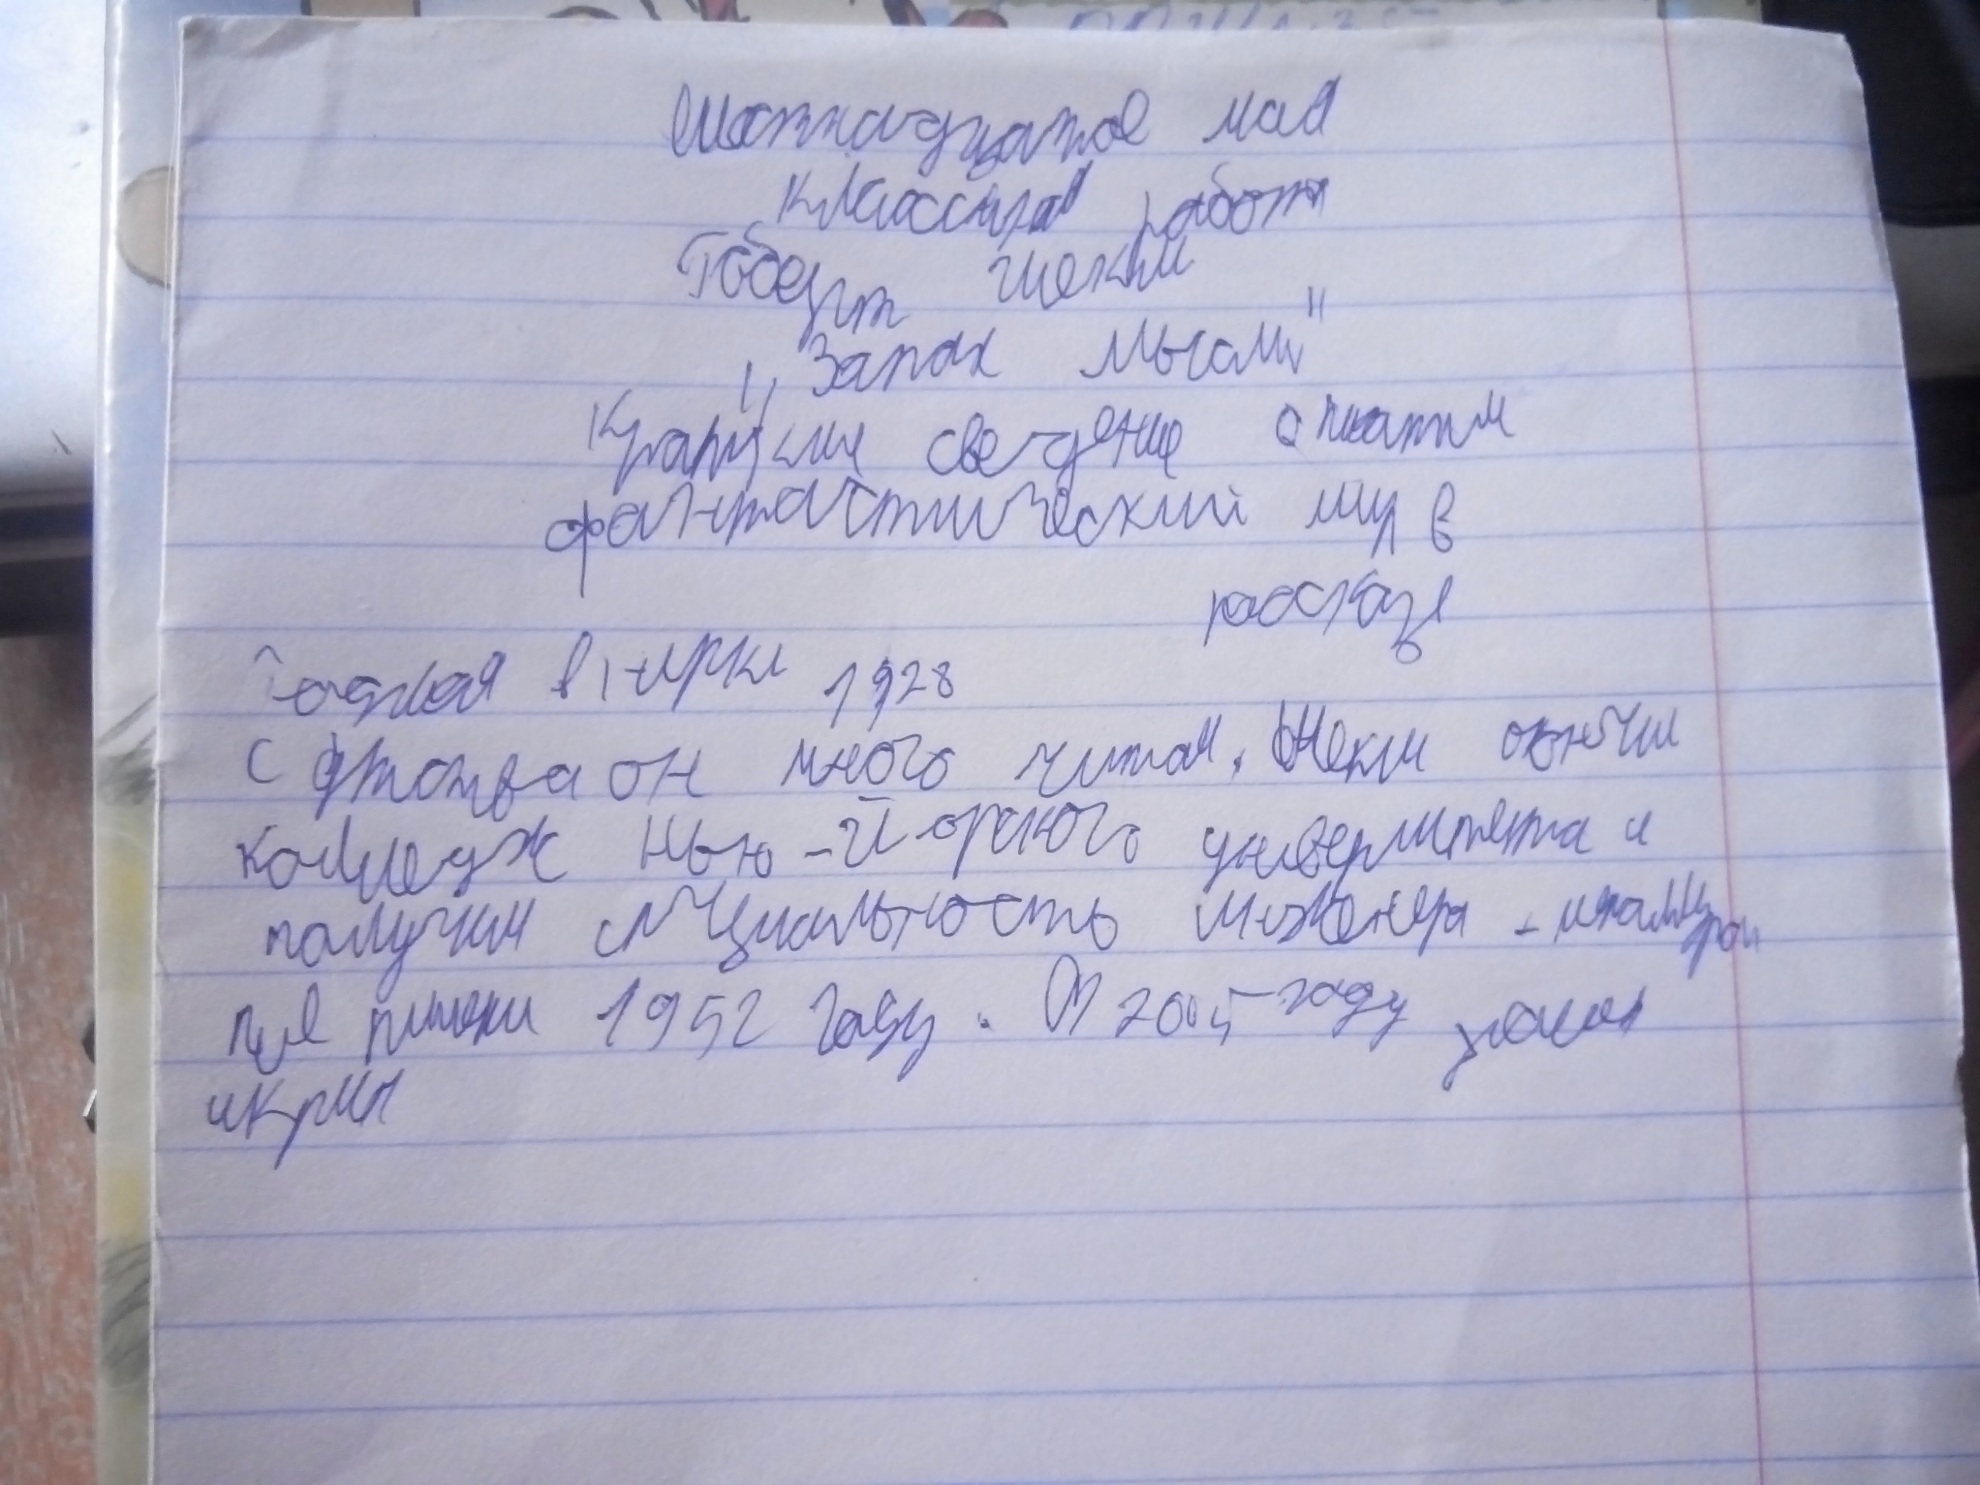 Шестнадцатое мая
Классная работа
Роберт Шекли
„Запах мысли"
Краткие сведение о писатим
фантастический мир в
рассказе
в 1928
С детства он много читал. Шекли окончил
колледж Нью-Йоркского университета и
получил специальность инженера -
1952 году. В 2005 году